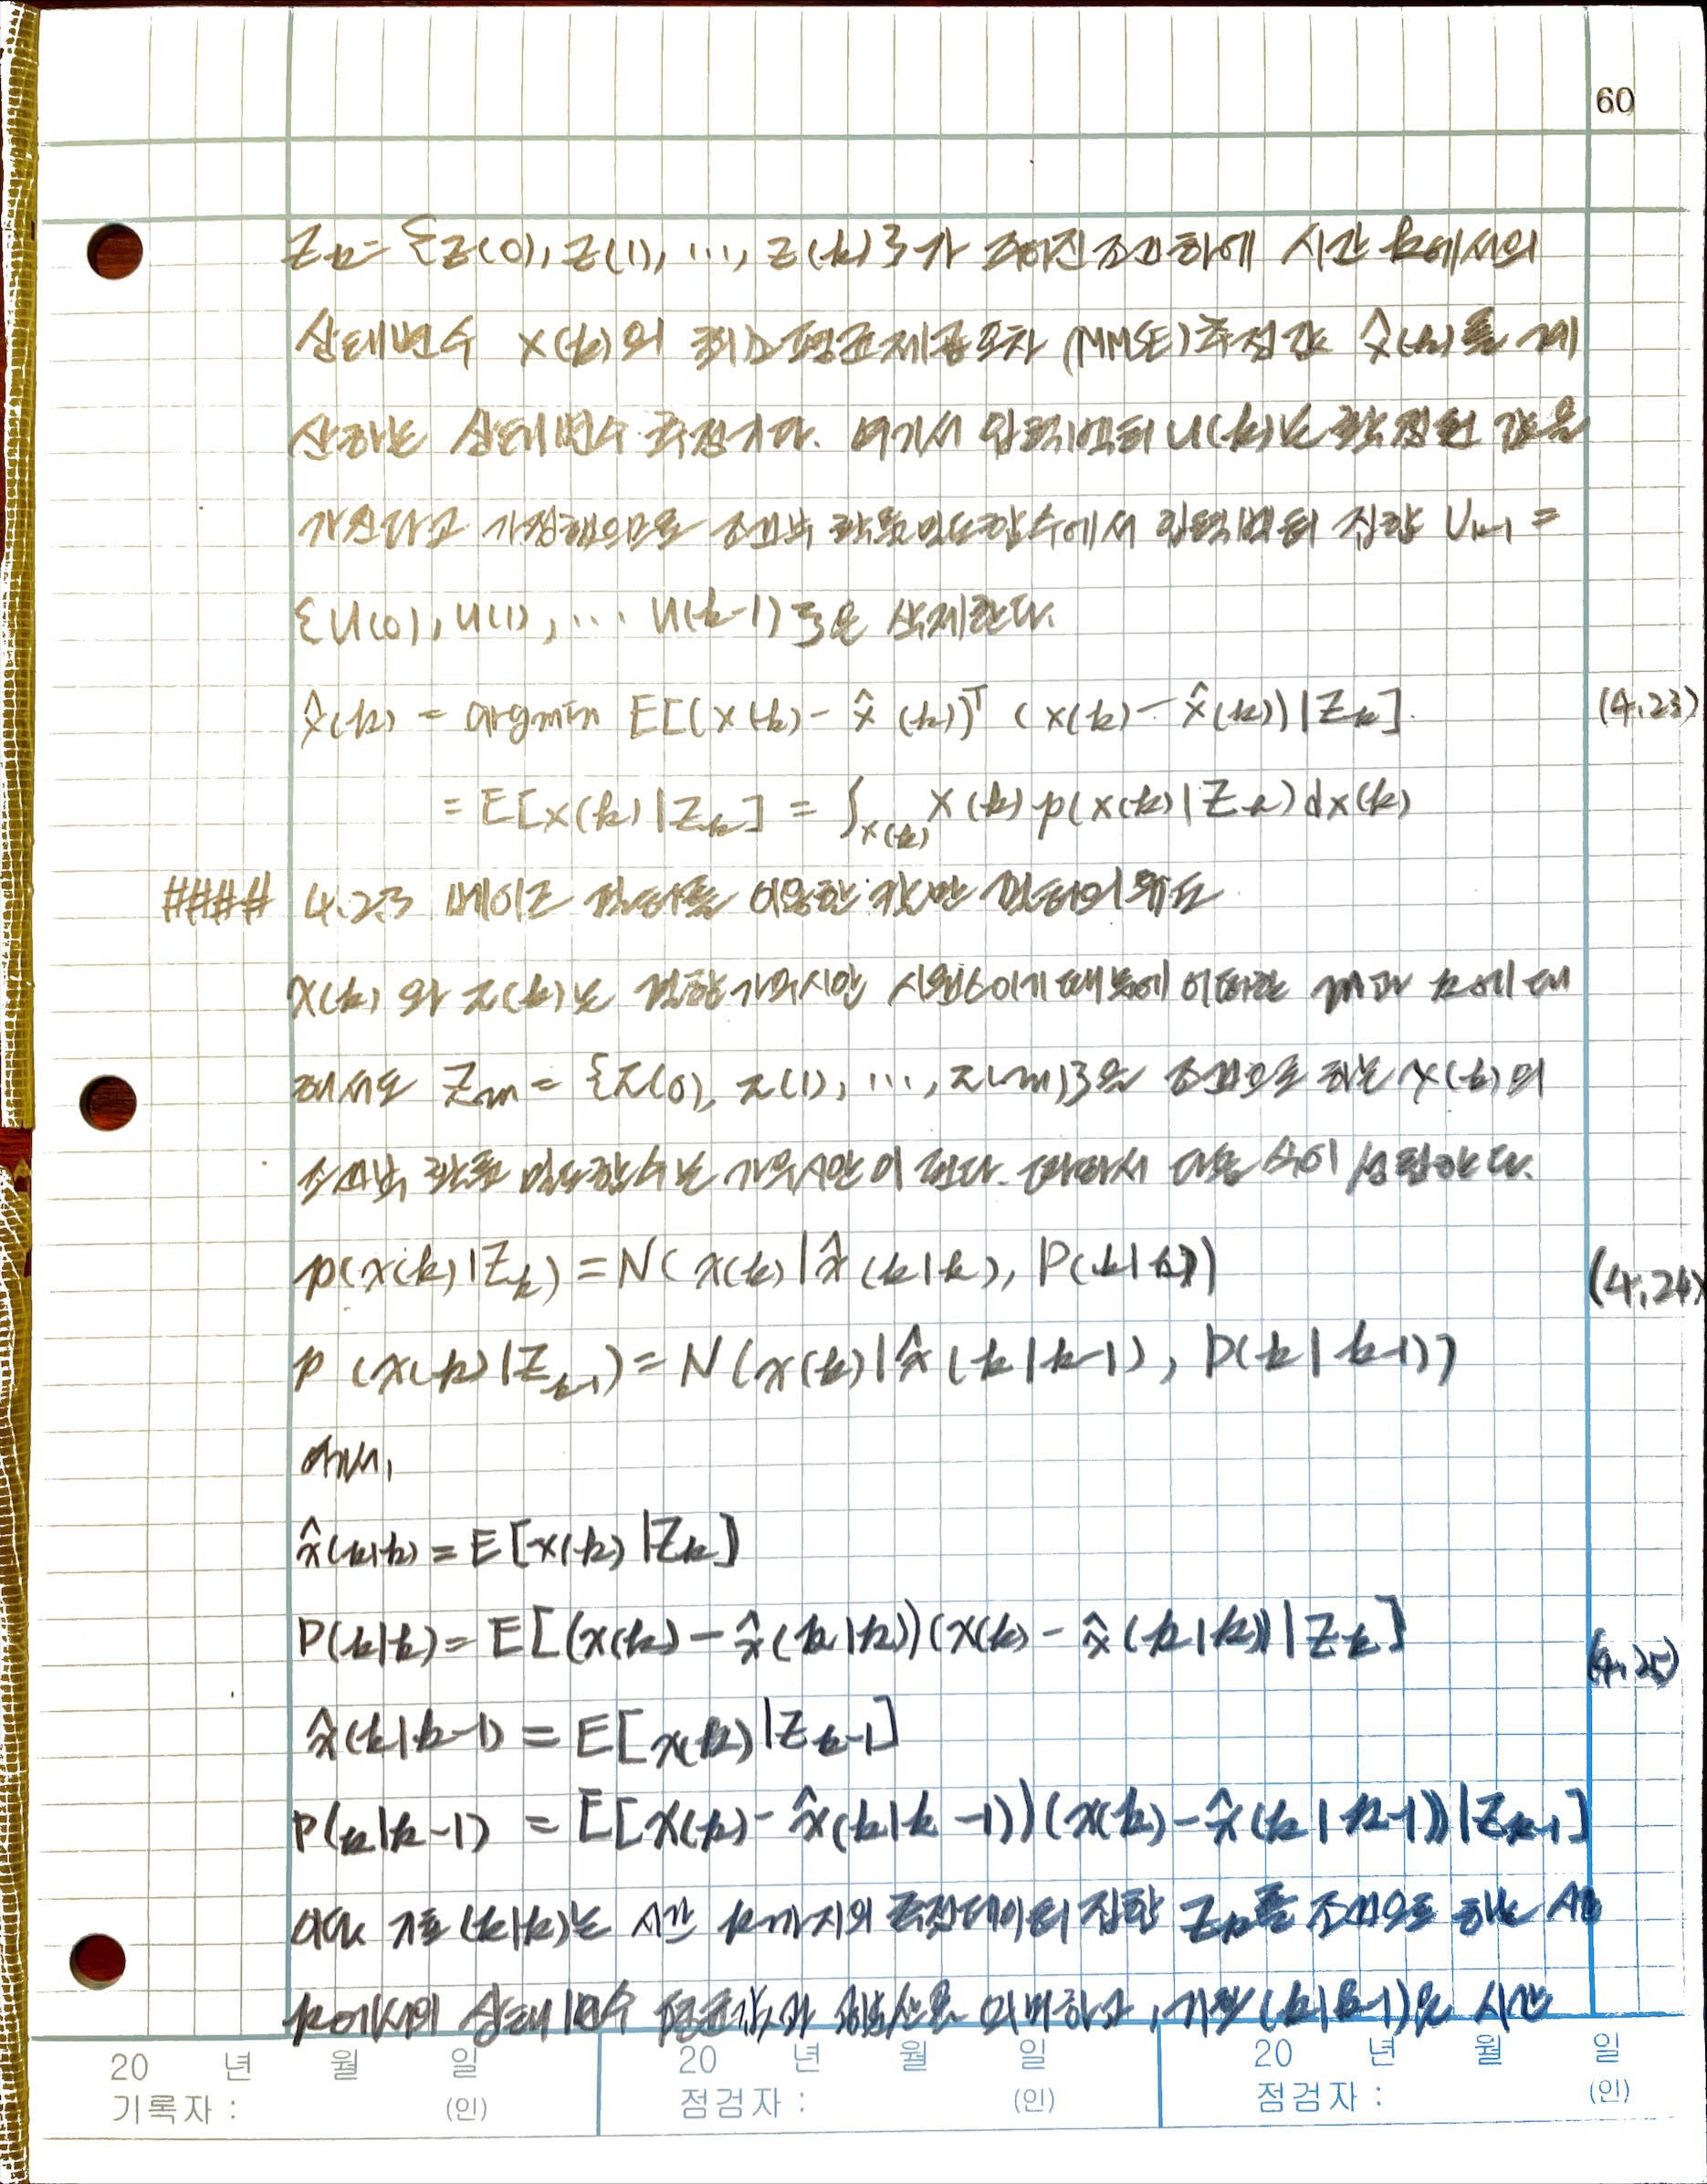 60
Z_k = {z(0), z(1), ..., z(k)}가 주어진 조건하에 시간 k에서의
상태변수 x(k)의 최소평균제곱오차 (MMSE) 추정값 x̂(k)를 계
산하는 상태변수 추정기다. 여기서 입력벡터 u(k)는 확정된 값을
가진다고 가정했으므로 조건부 확률밀도함수에서 입력벡터 집합 U_k-1 =
{u(0), u(1), ... u(k-1)}은 삭제한다.
x̂(k) = argmin E[(x(k) - x̂(k))^T (x(k) - x̂(k)) | Z_k]. (4.23)
= E[x(k) | Z_k] = ∫_x(k) x(k) p(x(k) | Z_k) dx(k)
#### 4.2.3 베이즈 필터를 이용한 칼만 필터의 유도
x(k) 와 z(k)는 결합 가우시안 시퀀스이기 때문에 어떠한 m과 k에 대
해서도 Z_m = {z(0), z(1), ..., z(m)}을 조건으로 하는 x(k)의
조건부 확률 밀도함수는 가우시안이 된다. 따라서 다음 식이 성립한다.
p(x(k) | Z_k) = N(x(k) | x̂(k|k), P(k|k)) (4.24)
p(x(k) | Z_k-1) = N(x(k) | x̂(k|k-1), P(k|k-1))
여기서,
x̂(k|k) = E[x(k) | Z_k]
P(k|k) = E[(x(k) - x̂(k|k))(x(k) - x̂(k|k)) | Z_k]
(4.25)
x̂(k|k-1) = E[x(k) | Z_k-1]
P(k|k-1) = E[x(k) - x̂(k|k-1))(x(k) - x̂(k|k-1)) | Z_k-1]
이때 기호 (k|k)는 시간 k까지의 측정데이터 집합 Z_k를 조건으로 하는 시간
k에서의 상태변수 평균값과 공분산을 의미하고, (k|k-1)은 시간
20 년 월 일 20 년 월 일 20 년 월 일
기록자 : (인) 점검자 : (인) 점검자 : (인)